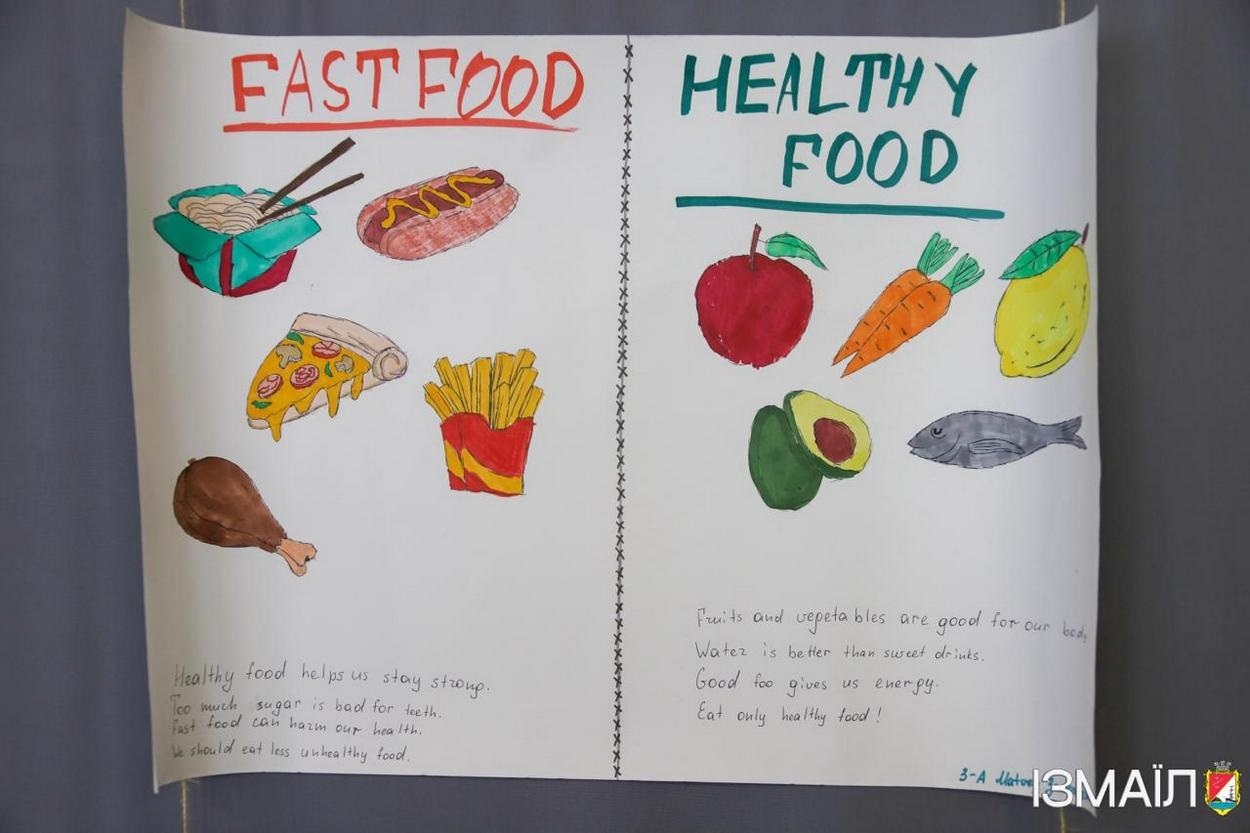 FAST FOOD
Healthy food helps us stay strong.
Too much sugar is bad for teeth.
Fast food can harm our health.
We should eat less unhealthy food.
HEALTHY
FOOD
Fruits and vegetables are good for our body
Water is better than sweet drinks.
Good foo gives us energy.
Eat only healthy food!
3-A
ІЗМАЇЛ